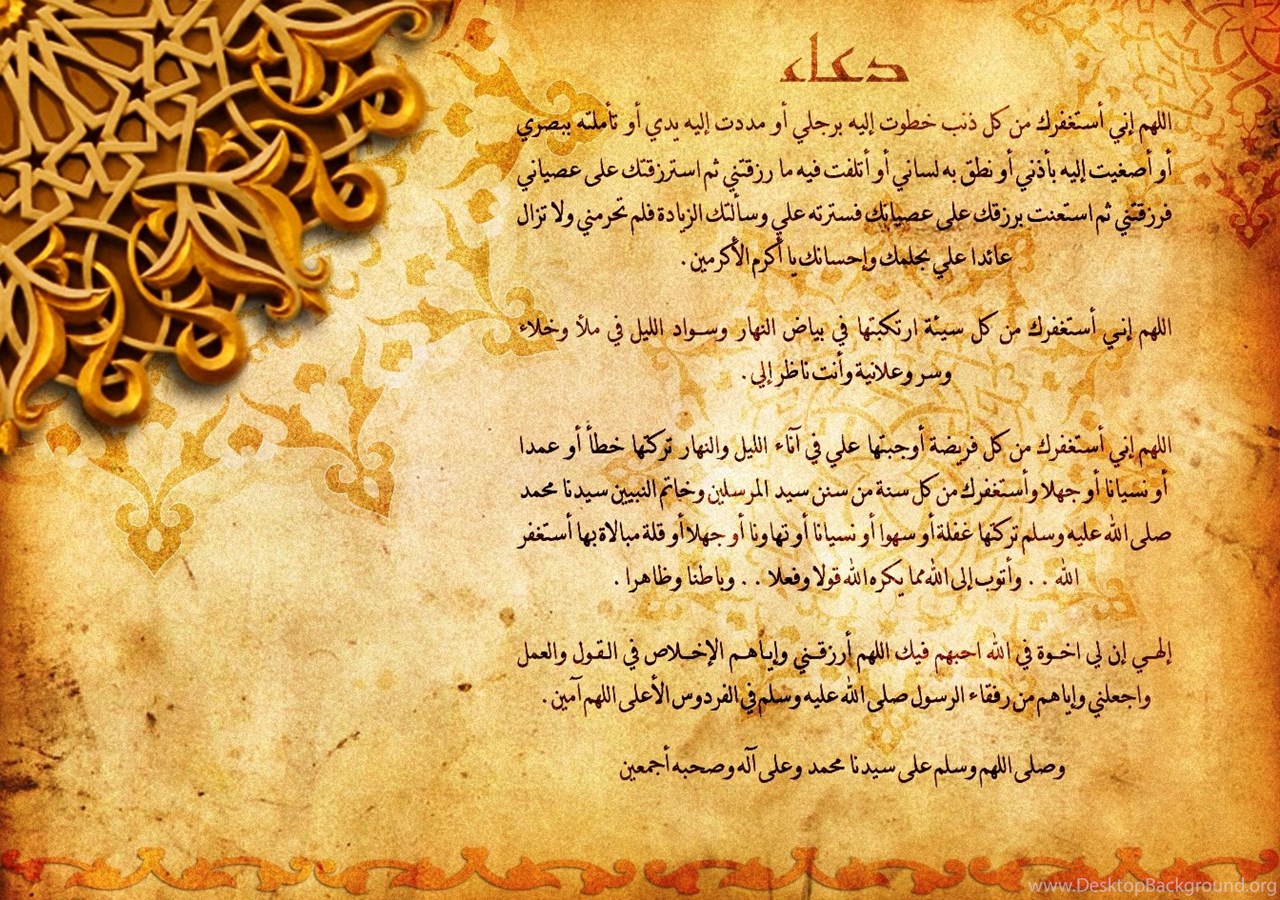 دعاء
اللهم إني أستغفرك من كل ذنب خطوت إليه برجلي أو مددت إليه يدي أو تأملته ببصري
أو أصغيت إليه بأذني أو نطق به لساني أو أتلفت فيه ما رزقتني ثم استرزقتك على عصياني
فرزقتني ثم استعنت برزقك على عصيانك فسترته علي وسألتك الزيادة فلم تحرمني ولا تزال
عائدا علي بحلمك وإحسانك يا أكرم الأكرمين .
اللهم إني أستغفرك من كل سيئة ارتكبتها في بياض النهار وسواد الليل في ملأ وخلاء
وسر وعلانية وأنت ناظر إلي .
اللهم إني أستغفرك من كل فريضة أوجبتها علي في آناء الليل والنهار تركتها خطأ أو عمدا
أو نسيانا أو جهلا وأستغفرك من كل سنة من سنن سيد المرسلين وخاتم النبيين سيدنا محمد
صلى الله عليه وسلم تركتها غفلة أو سهوا أو نسيانا أو تهاونا أو جهلا أو قلة مبالاة بها أستغفر
الله . . وأتوب إلى الله مما يكره الله قولا وفعلا . . وباطنا وظاهرا .
إلهي إن لي اخوة في الله احبهم فيك اللهم أرزقني وإياهم الإخلاص في القول والعمل
واجعلني وإياهم من رفقاء الرسول صلى الله عليه وسلم في الفردوس الأعلى اللهم آمين .
وصلى اللهم وسلم على سيدنا محمد وعلى آله وصحبه أجمعين
www.DesktopBackground.org